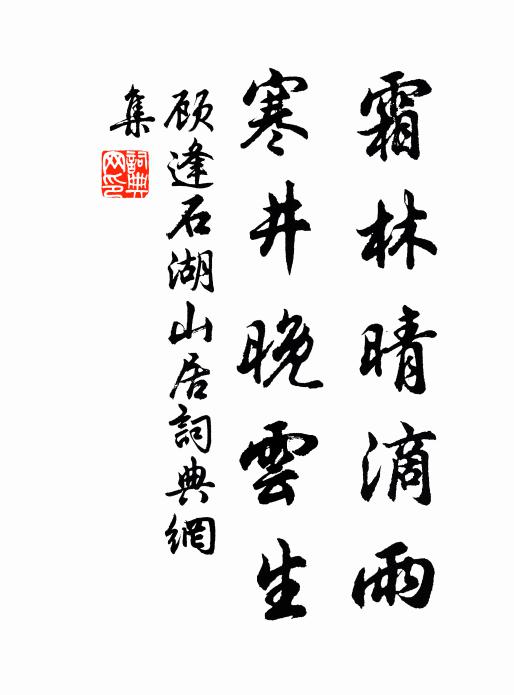 霜林晴滴雨
寒井晚雲生
顾逢石湖山居詞典網
集
詞典
网印